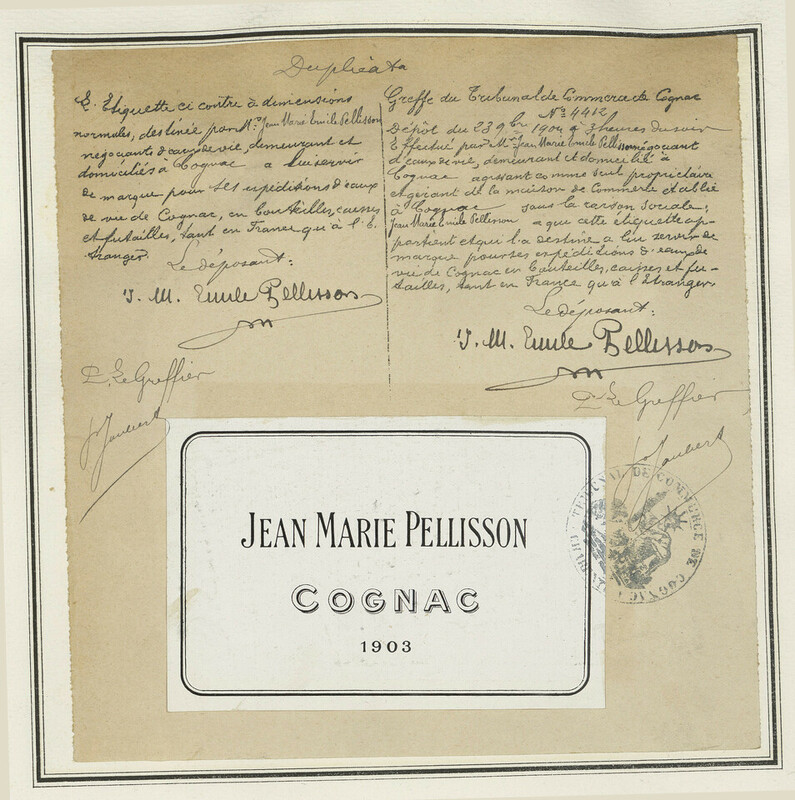 Duplicata
L'Etiquette ci contre à dimensions
normales, destinée par Mr. Jean Marie Emile Pellisson
négociants d'eaux de vie, demeurant et
domiciliés à Cognac a lui servir
de marque pour ses expéditions d'eaux
de vie de Cognac, en bouteilles, caisses
et futailles, tant en France qu'à l'E
tranger.
Le déposant:
J. M. Emile Pellisson
P. Le Greffier
Greffe du Tribunal de Commerce de Cognac
No 4412
Dépôt du 23 9bre 1904 à 3 heures du soir
Effectué par Mr. Jean Marie Emile Pellisson négociant
d'eaux de vie, demeurant et domicilié à
Cognac agissant comme seul propriétaire
et gérant de la maison de Commerce établie
à Cognac sous la raison sociale:
Jean Marie Emile Pellisson a que cette étiquette ap-
partient et qui l'a destine a lui servir de
marque pour ses expéditions d'eaux de
vie de Cognac en bouteilles, caisses et fu-
tailles, tant en France qu'à l'Etranger.
Le déposant:
J. M. Emile Pellisson
P. Le Greffier
Joubert
TRIBUNAL DE COMMERCE DE COGNAC
JEAN MARIE PELLISSON
COGNAC
1903